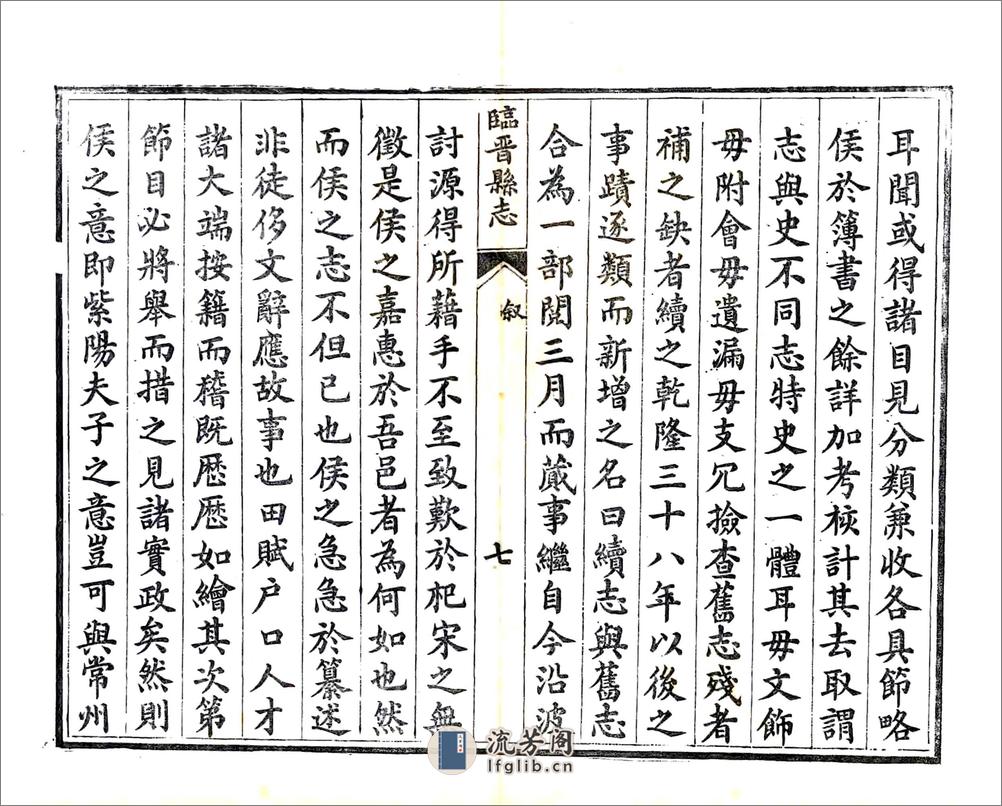 耳聞或得諸目見分類兼收各具節略
侯於簿書之餘詳加考核計其去取謂
志與史不同志特史之一體耳毋文飾
毋附會毋遺漏毋支冗撿查舊志殘者
補之缺者續之乾隆三十八年以後之
事蹟逐類而新增之名曰續志與舊志
合為一部閱三月而蕆事繼自今沿波
臨晉縣志
敘
七
討源得所藉手不至致歎於杞宋之無
徵是侯之嘉惠於吾邑者為何如也然
而侯之志不但已也侯之急急於纂述
非徒侈文辭應故事也田賦户口人才
諸大端按籍而稽既歷歷如繪其次第
節目必將舉而措之見諸實政矣然則
侯之意即紫陽夫子之意豈可與常州
流芳阁
lfglib.cn